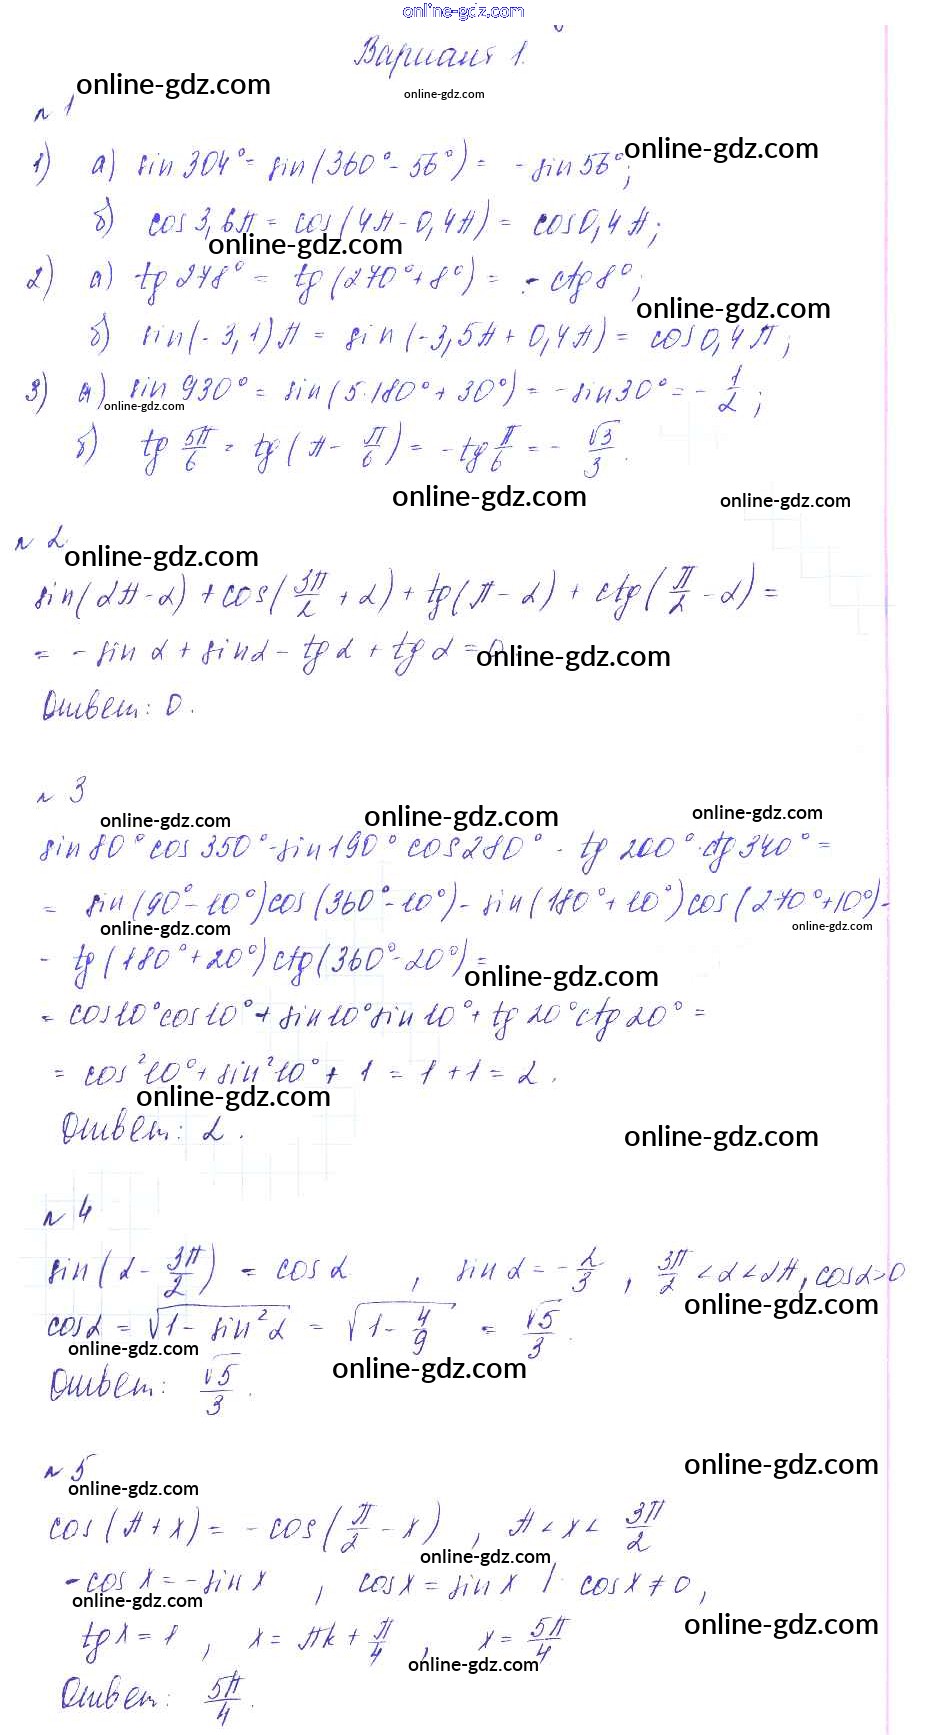 online-gdz.com
Вариант 1.
online-gdz.com
online-gdz.com
№ 1
online-gdz.com
1) а) sin 304° = sin(360° - 56°) = - sin 56°;
б) cos 3,6π = cos(4π - 0,4π) = cos 0,4π;
online-gdz.com
2) а) tg 278° = tg(270° + 8°) = - ctg 8°;
online-gdz.com
б) sin(-3,1)π = sin(-3,5π + 0,4π) = cos 0,4π;
3) а) sin 930° = sin(5·180° + 30°) = - sin 30° = - 1/2;
online-gdz.com
б) tg 5π/6 = tg(π - π/6) = - tg π/6 = - √3/3.
online-gdz.com
online-gdz.com
№ 2
online-gdz.com
sin(2π - α) + cos(3π/2 + α) + tg(π - α) + ctg(π/2 - α) =
= - sin α + sin α - tg α + tg α = 0
online-gdz.com
Ответ: 0.
№ 3
online-gdz.com
online-gdz.com
online-gdz.com
sin 80° cos 350° - sin 190° cos 280° - tg 200° · ctg 340° =
= sin(90° - 10°) cos(360° - 10°) - sin(180° + 10°) cos(270° + 10°) -
online-gdz.com
online-gdz.com
- tg(180° + 20°) ctg(360° - 20°) =
online-gdz.com
= cos 10° cos 10° + sin 10° sin 10° + tg 20° ctg 20° =
= cos² 10° + sin² 10° + 1 = 1 + 1 = 2.
online-gdz.com
Ответ: 2.
online-gdz.com
№ 4
sin(α - 3π/2) = cos α, sin α = - 2/3, 3π/2 < α < 2π, cos α > 0
online-gdz.com
cos α = √(1 - sin² α) = √(1 - 4/9) = √5/3.
online-gdz.com
online-gdz.com
Ответ: √5/3.
№ 5
online-gdz.com
online-gdz.com
cos(π + x) = - cos(π/2 - x), π < x < 3π/2
online-gdz.com
- cos x = - sin x, cos x = sin x |: cos x ≠ 0,
online-gdz.com
online-gdz.com
tg x = 1, x = πk + π/4, x = 5π/4
online-gdz.com
Ответ: 5π/4.